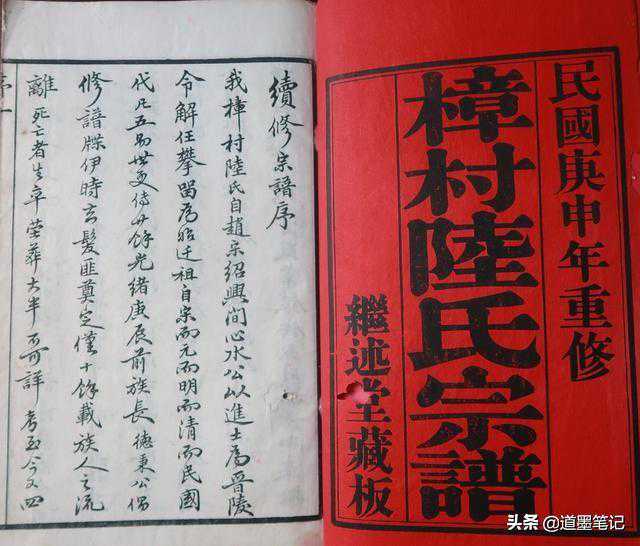 民國庚申年重修
樟村陸氏宗譜
繼述堂藏板
續修宗譜序
我樟村陸氏自趙宋紹興間心水公以進士為晉陵
令解任攀留為始迁祖自宋而元而明而清而民國
代凡五易世更傳廿餘光緒庚辰前族長德秉公倡
修譜牒伊時去髮匪奠定僅十餘載族人之流
離死亡者生卒塋葬大半詳考至今又四
头条 @道墨笔记